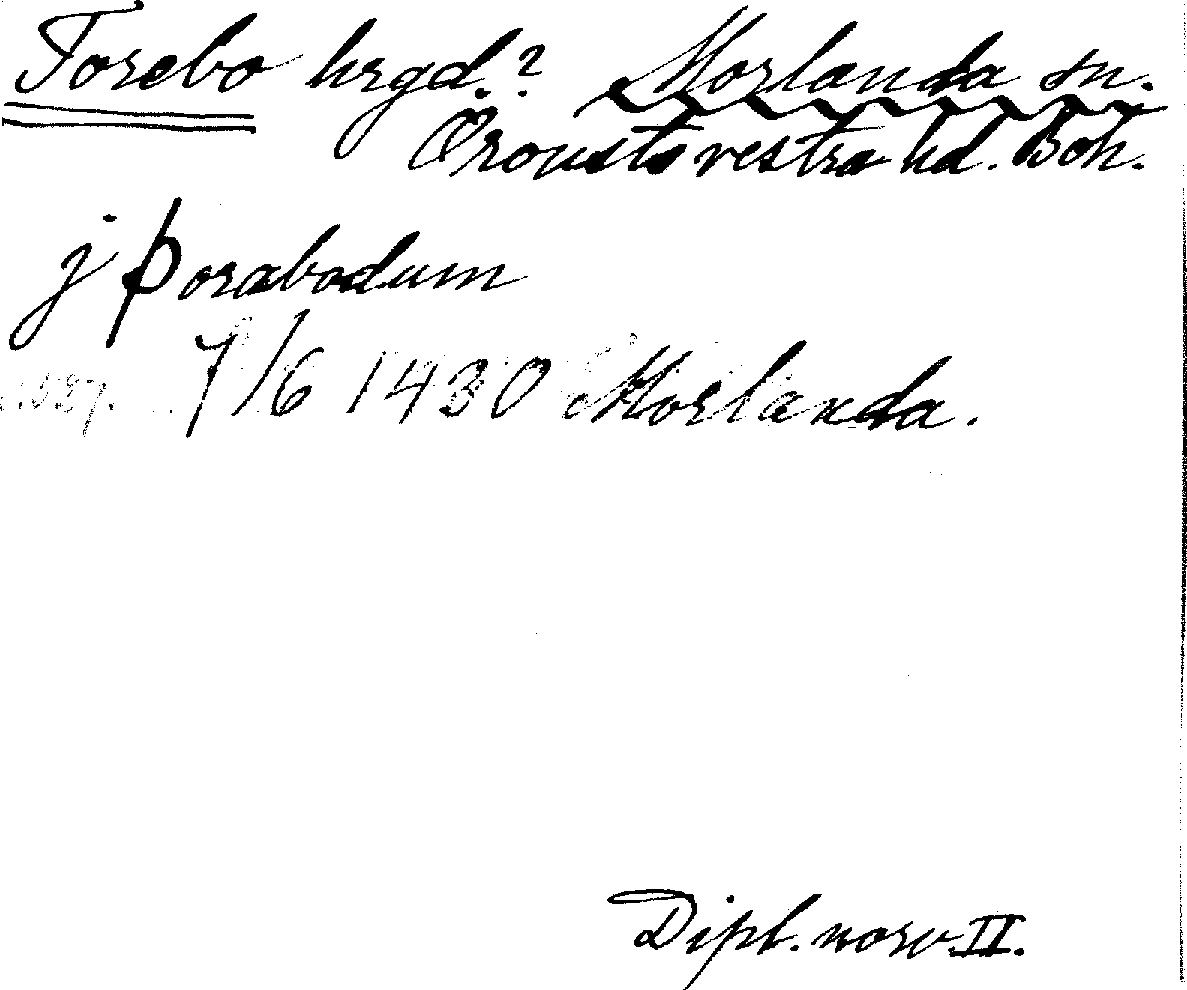 Torebo hrgd.? Morlanda sn.
Orousts vestra hd. Boh.
j Þorabodum
7/6 1430 Morlanda.
Dipl. norv. II.